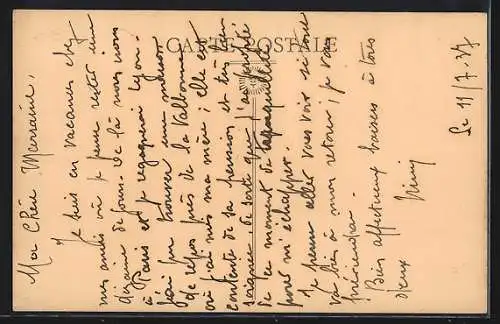 CARTE POSTALE
Le 11/7.37
Ma Chère Marraine,
Je suis en vacances chez
mes amis où je pense rester une
dizaine de jours. De là nous irons
à Paris et je regagnerai Lyon.
J'ai pu trouver une maison
de repos près de la Valbonne
où j'ai mis ma mère ; elle est
contente de sa pension et très bien
soignée ; de sorte que j'ai profité
de ce moment de tranquillité
pour m'échapper.
Je pense aller vous voir si tout
va bien à mon retour ; je vous
préviendrai.
Bien affectueux baisers à tous
deux